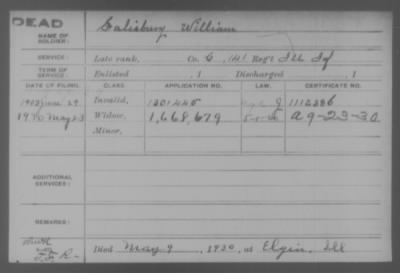 DEAD
NAME OF SOLDIER: Salisbury William
SERVICE: Late rank, Co. G, 141 Reg't Ill Inf
TERM OF SERVICE: Enlisted , 1 Discharged , 1
DATE OF FILING. CLASS. APPLICATION NO. LAW. CERTIFICATE NO.
1903 June 29 Invalid, 1301445 1112286
1930 May 23 Widow, 1,668,679 a 9-23-30
Minor,
ADDITIONAL SERVICES:
REMARKS:
Died May 9, 1930, at Elgin, Ill